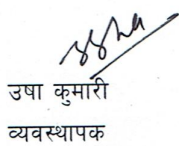 उषा कुमारी
व्यवस्थापक